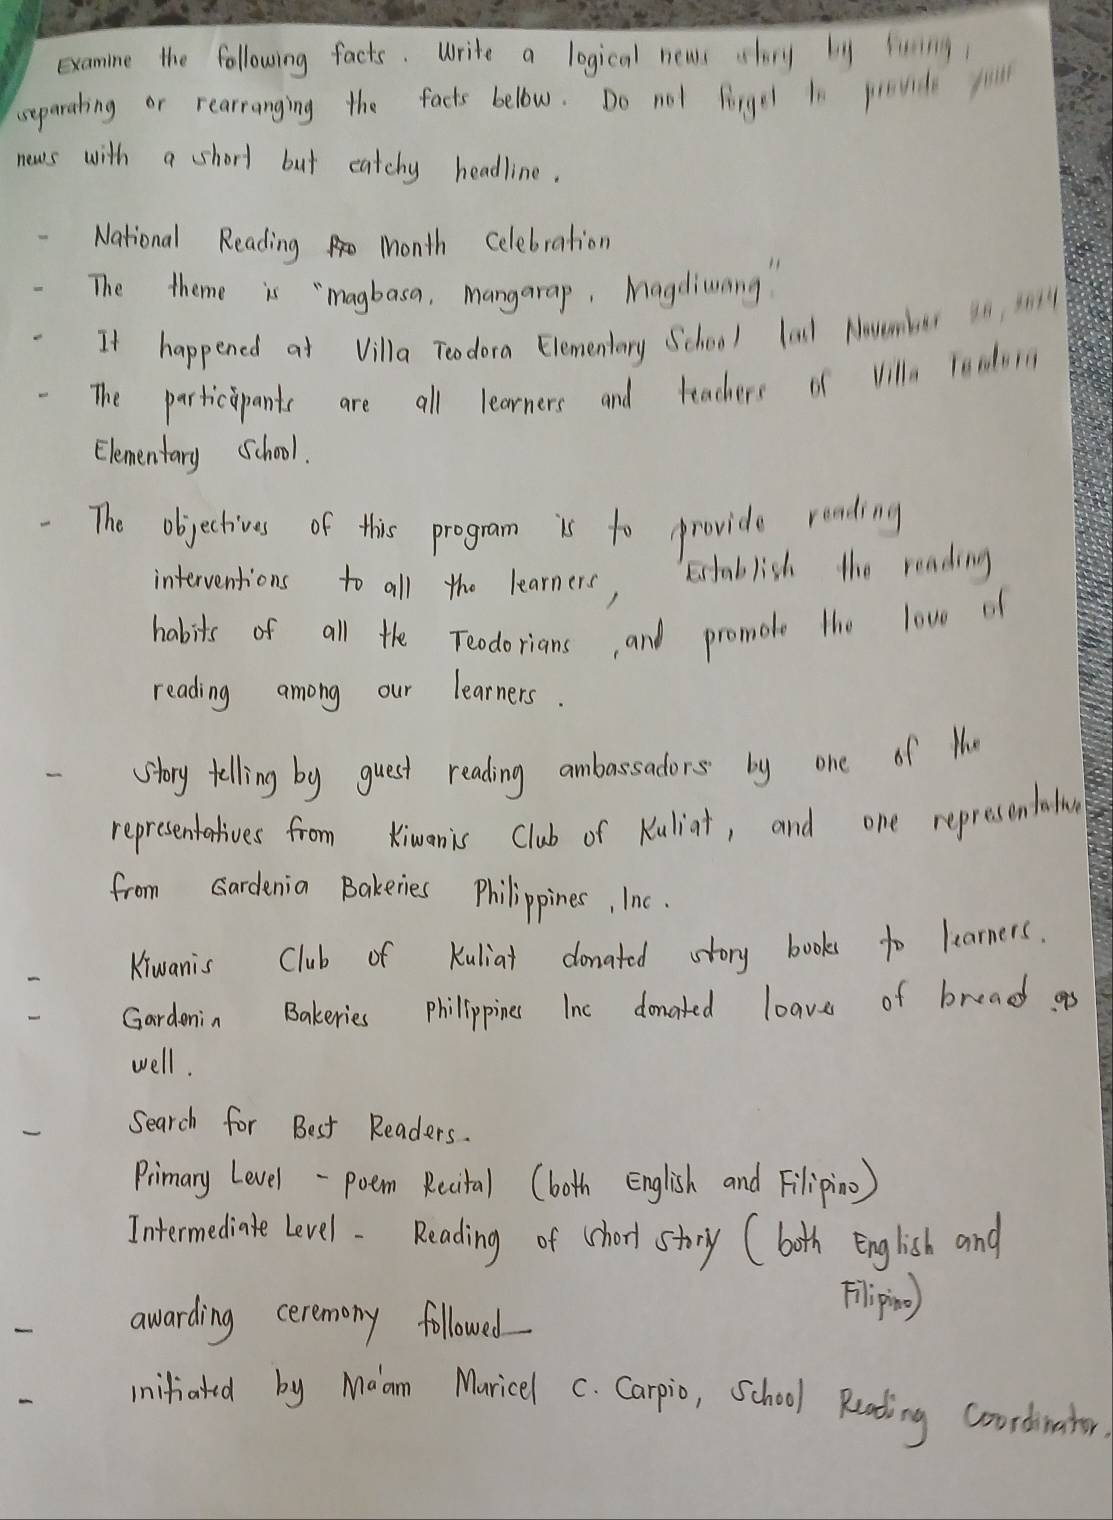 Examine the following facts. Write a logical news story by fusing,
separating or rearranging the facts below. Do not forget to provide your
news with a short but catchy headline.
- National Reading Month Celebration
- The theme is "magbasa, Mangarap, Magdiwang"
- It happened at Villa Teodora Elementary School last November
- The participants are all learners and teachers of Villa Teodora
Elementary School.
- The objectives of this program is to provide reading
interventions to all the learners, Establish the reading
habits of all the Teodorians, and promote the love of
reading among our learners.
- Story telling by guest reading ambassadors by one of the
representatives from Kiwanis Club of Kuliat, and one representative
from Gardenia Bakeries Philippines, Inc.
- Kiwanis Club of Kuliat donated story books to learners.
- Gardenia Bakeries Philippines Inc donated loaves of bread as
well.
- Search for Best Readers.
Primary Level - Poem Recital (both English and Filipino)
Intermediate Level - Reading of short story (both English and
Filipino)
- awarding ceremony followed
- initiated by Ma'am Maricel C. Carpio, School Reading Coordinator.